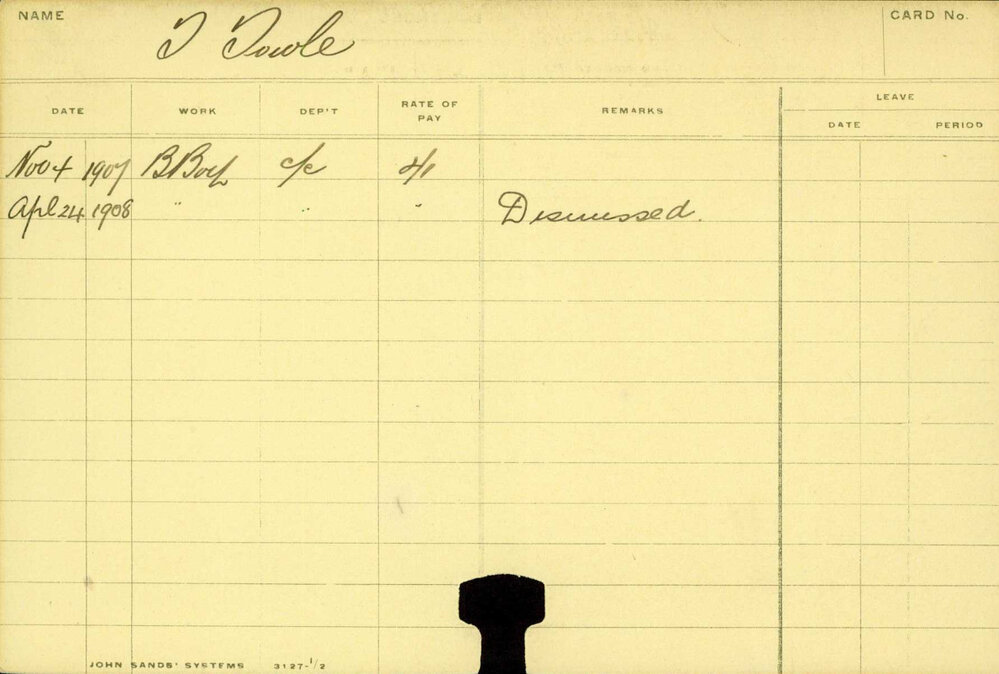 NAME T Towle CARD No.
LEAVE
DATE WORK DEP'T RATE OF PAY REMARKS DATE PERIOD
Nov 4 1907 B Boy c/c 4/1
Apl 24 1908 " " " Dismissed.
JOHN SANDS' SYSTEMS 3127-1/2